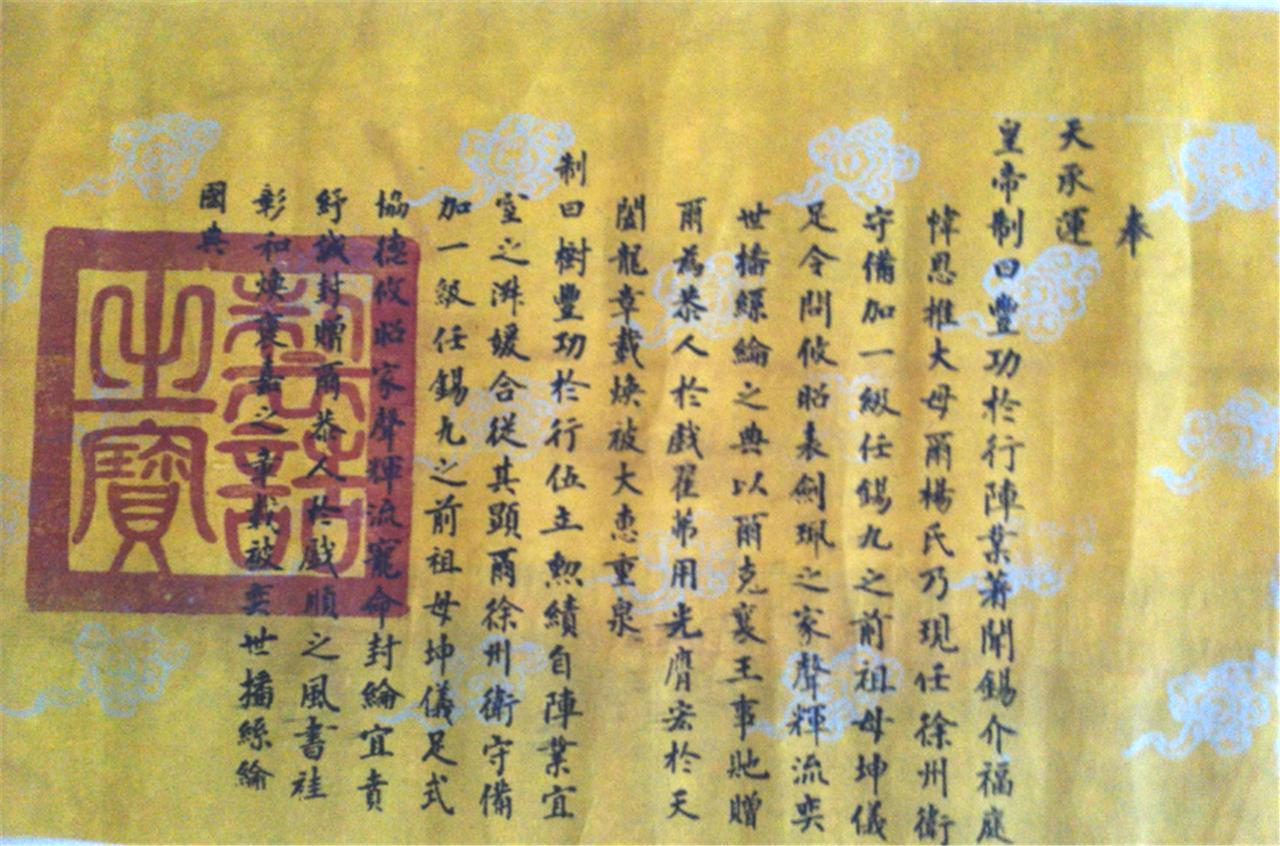 奉
天承運
皇帝制曰豐功於行陣業著聞錫介福庭
幃恩推大母爾楊氏乃現任徐州衛
守備加一級任錫九之前祖母坤儀
足令問攸昭表劍珮之家聲輝流奕
世播縲綸之典以爾克襄王事貤贈
爾為恭人於戲翟茀用光膺宏於天
闔龍章載煥被大恵重泉
制曰樹豐功於行伍立勲績自陣業宜
室之淋媛合從其顯爾徐州衛守備
加一級任錫九之前祖母坤儀足式
協德攸昭家聲輝流寵命封綸宜賁
紆誠封贈爾恭人於戲順之風書袿
彰和煥襃嘉之章載被奕世播絲綸
國典
制誥之寶